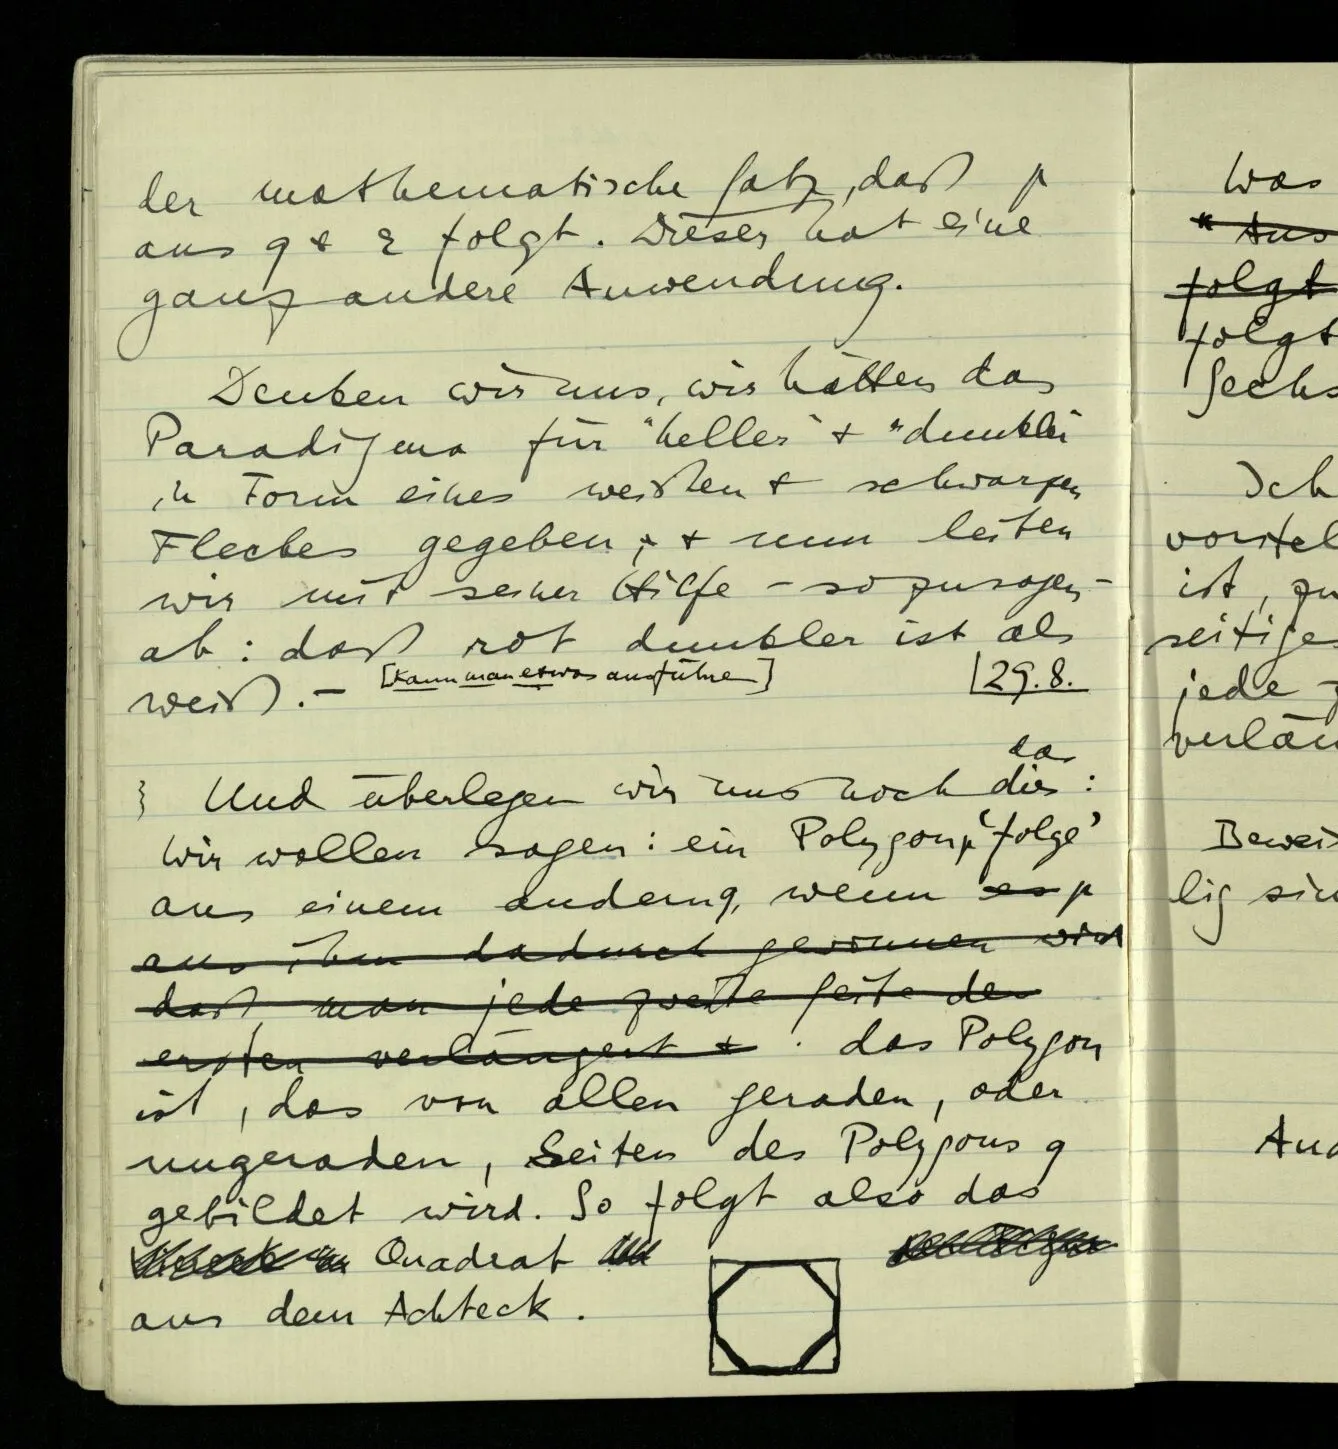 der mathematische Satz, daß p
aus q & r folgt. Dieser hat eine
ganz andere Anwendung.
Denken wir uns, wir hätten das
Paradigma für "heller" & "dunkler
in Form eines weißen & schwarzen
Fleckes gegeben, & nun leiten
wir mit seiner Hilfe – sozusagen –
ab: daß rot dunkler ist als
weiß. – [Kann man etwas ausführen]
29.8.
das
Und überlegen wir uns noch dies:
Wir wollen sagen: ein Polygon p 'folge'
aus einem andern q, wenn es p
aus ihm dadurch gewonnen wird
daß man jede zweite Seite des
ersten verlängert & . das Polygon
ist, das von allen geraden, oder
ungeraden, Seiten des Polygons q
gebildet wird. So folgt also das
Quadrat
aus dem Achteck.
Was
"Aus
folgt
folgt
Sechs
Ich
vorstel
ist, zu
seitiges
jede z
verlän
Beweis
lig sin
And